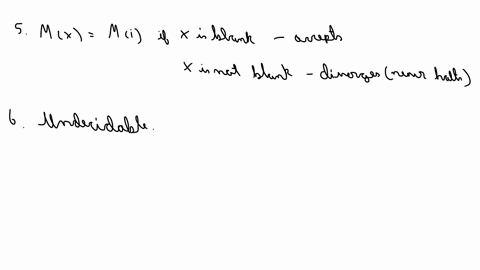 5. M(x) = M(i) if x is blank - accepts
x is not blank - diverges (never halts)
6. Undecidable.